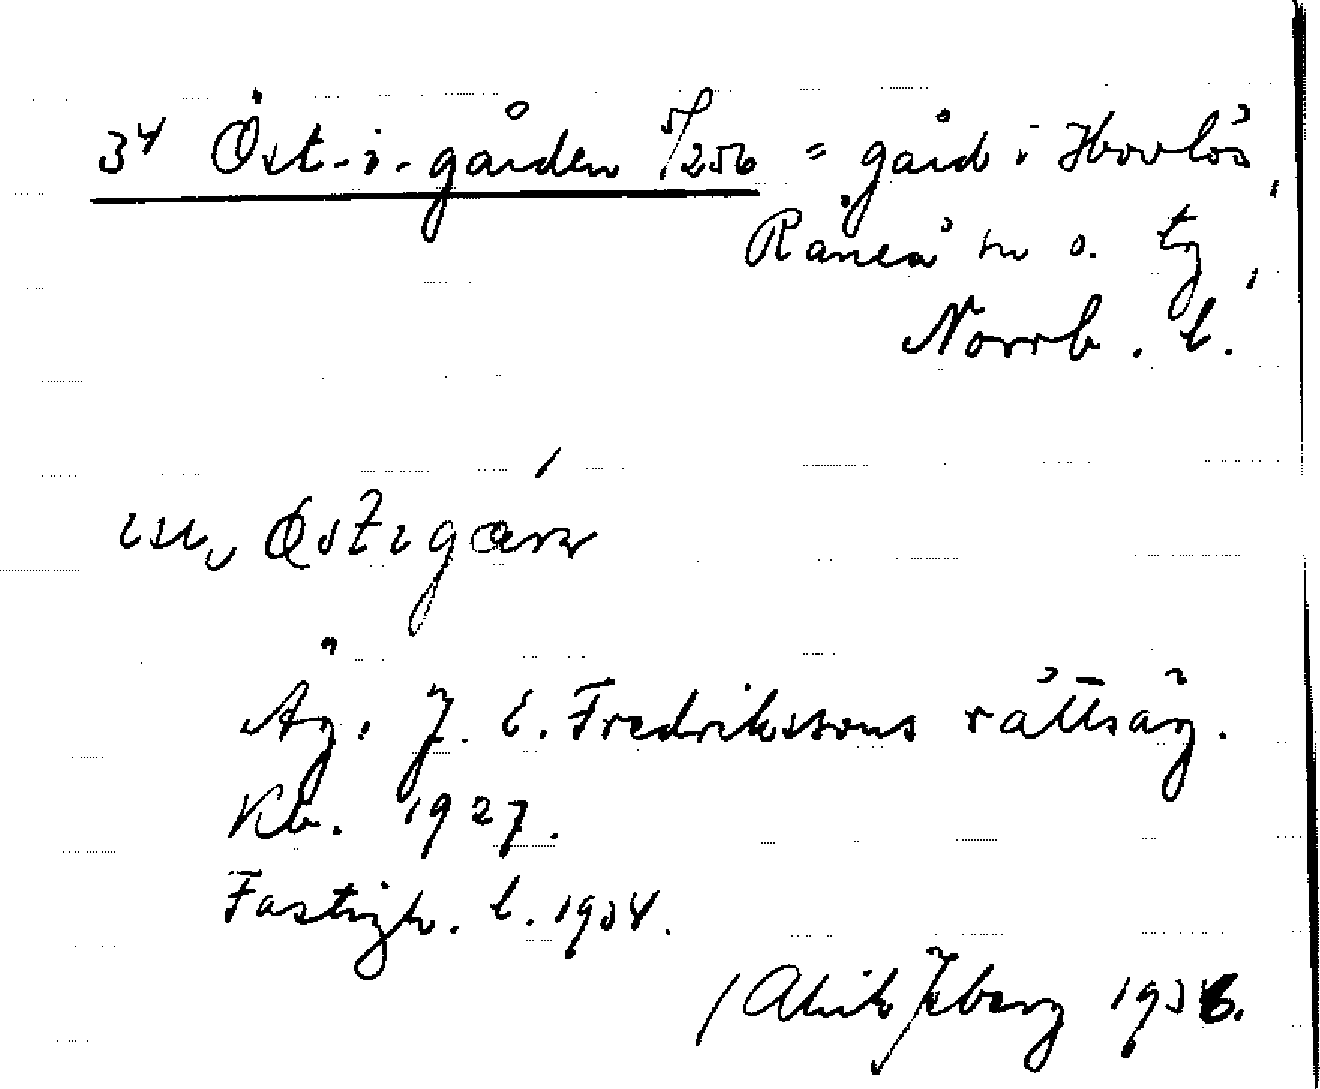 34 Öst-i-gården 5/256 = gård i Hovlös,
Råneå sn o. tg,
Norrb. l.
Östigárn
Äg. J. E. Fredrikssons rättsäg.
Kb. 1927.
Fastigh. l. 1934.